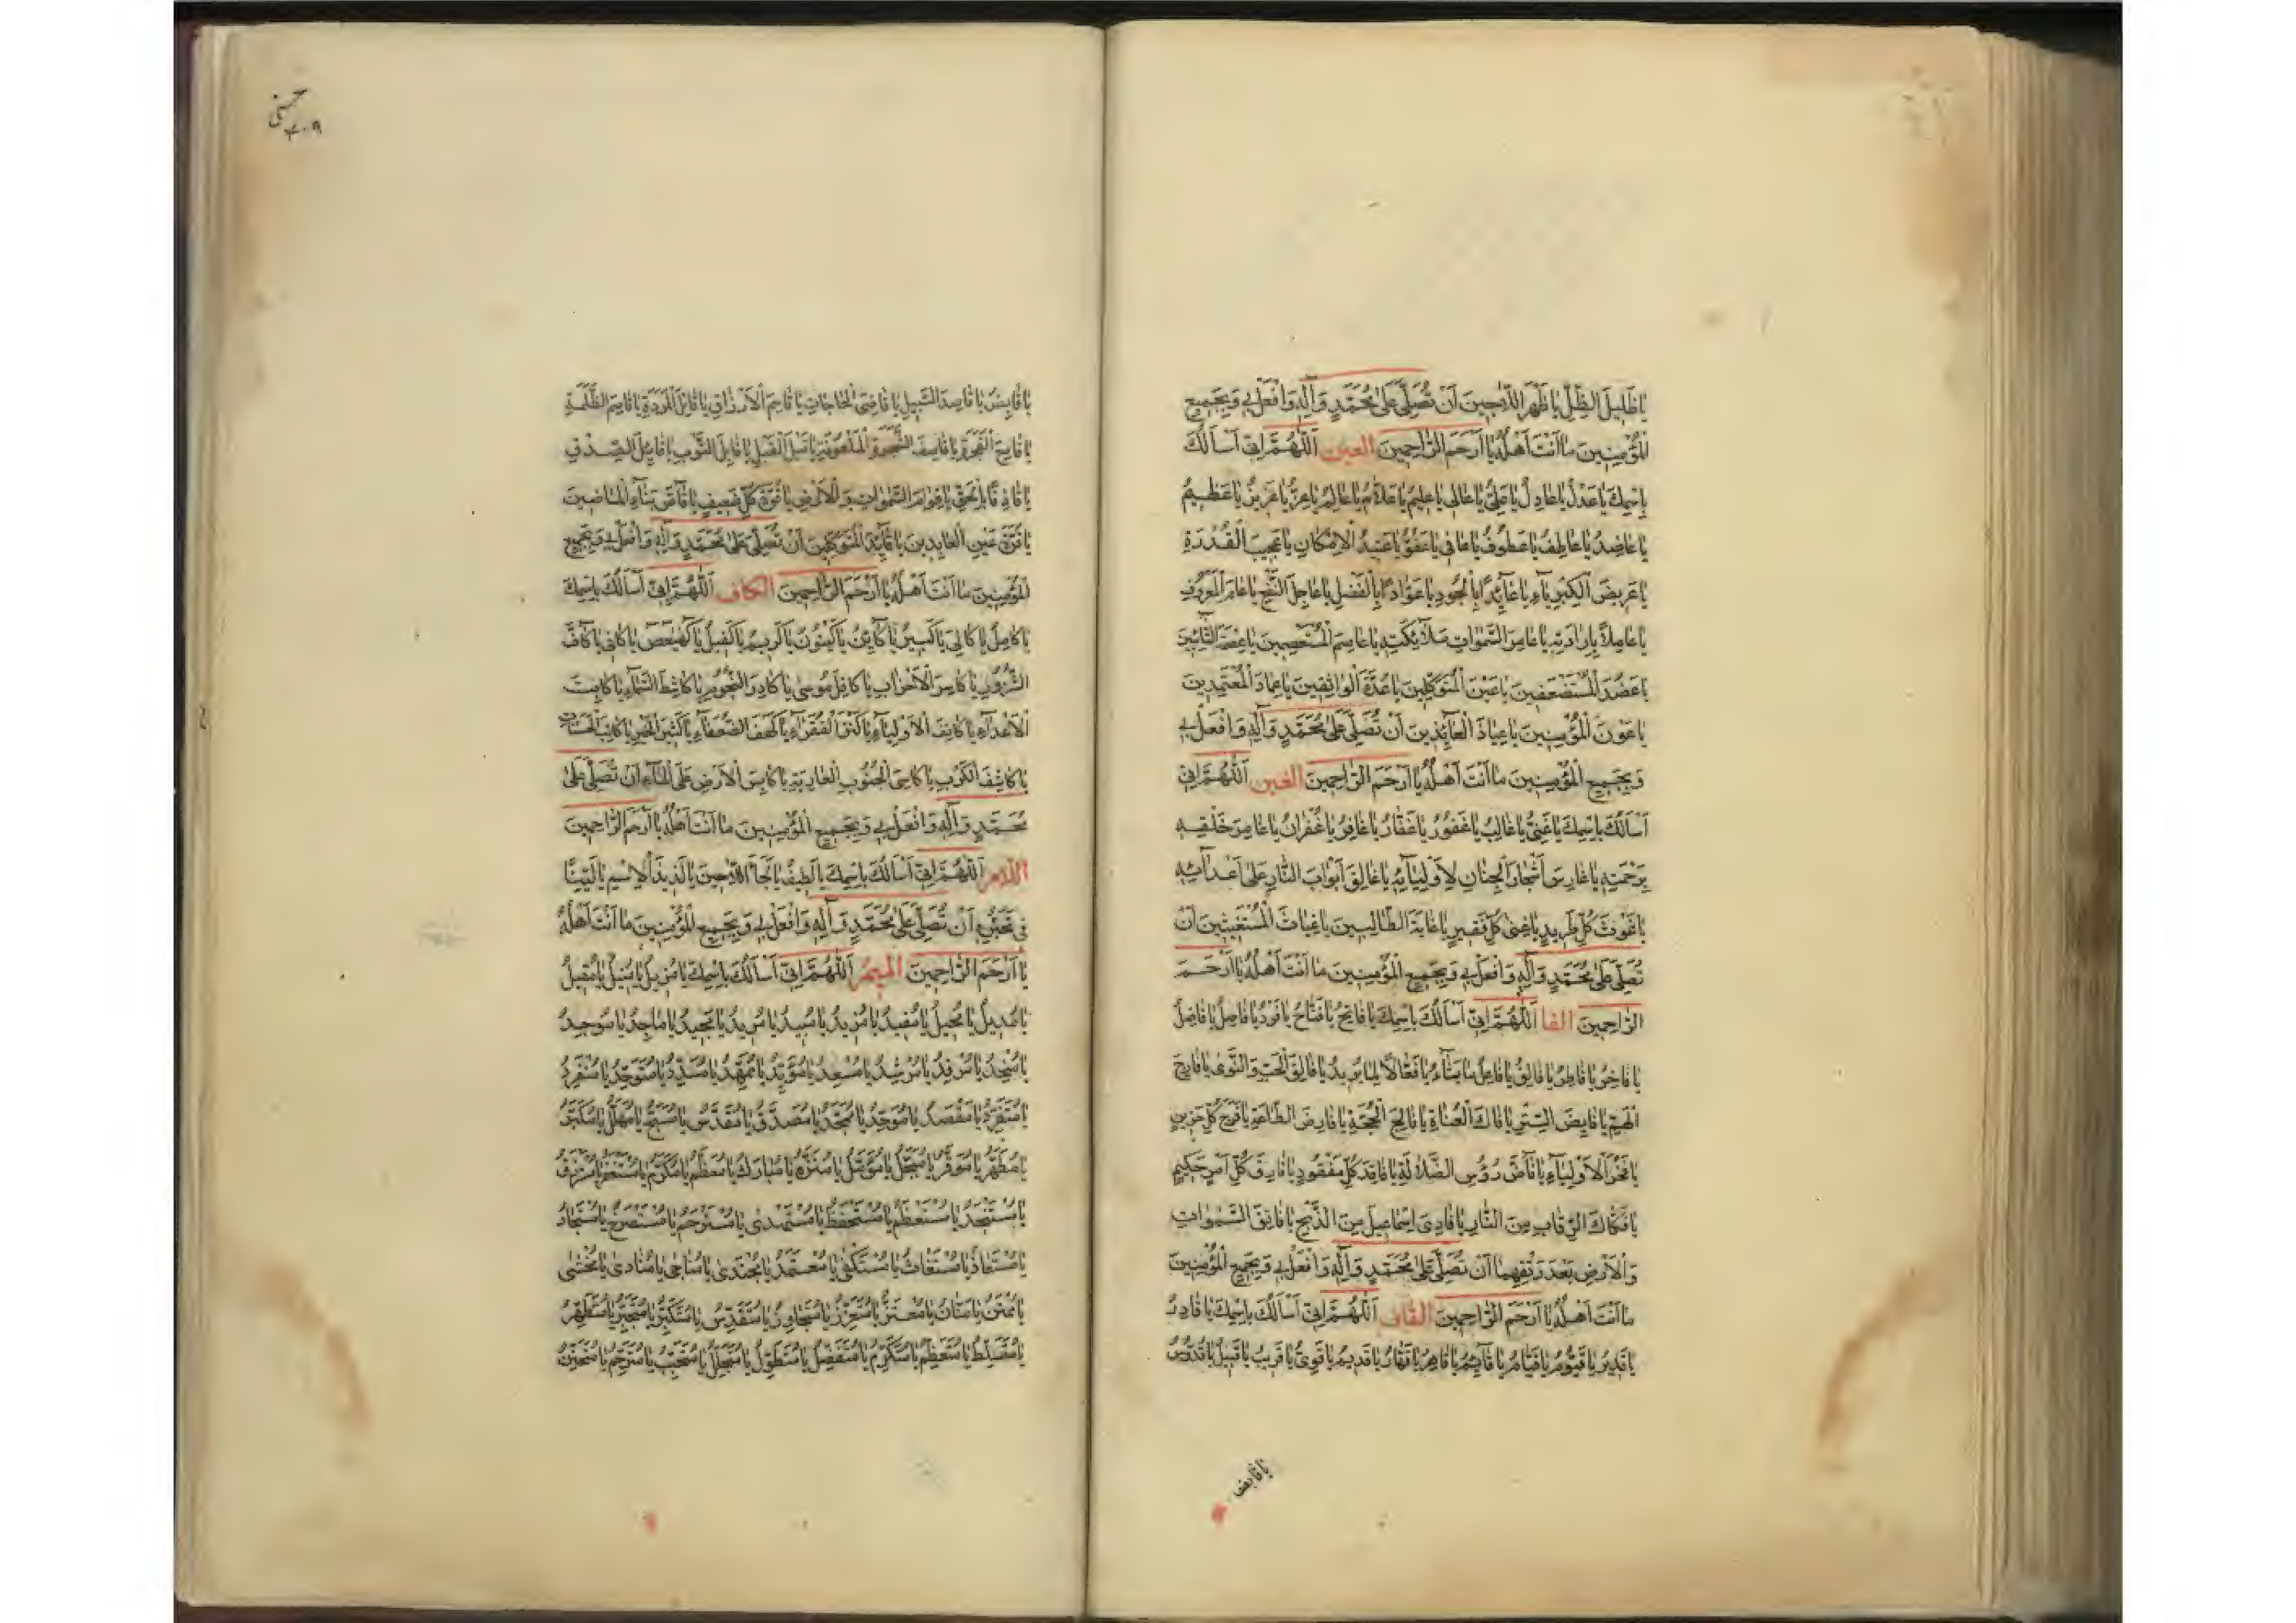 يا ظَلِيلَ الظِّلِّ يا ظَهْرَ اللّاجِينَ أَنْ تُصَلِّيَ عَلى مُحَمَّدٍ وَآلِهِ وَافْعَلْ بِي وَبِجَمِيعِ
الْمُؤْمِنِينَ ما أَنْتَ أَهْلُهُ يا أَرْحَمَ الرّاحِمِينَ العين اَللّهُمَّ إِنِّي أَسْأَلُكَ
بِاسْمِكَ يا عَدْلُ يا عادِلُ يا عَلِيُّ يا عالِي يا عَلِيمُ يا عَلّامُ يا عالِمُ يا عِزُّ يا عَزِيزُ يا عَظِيمُ
يا عاضِدُ يا عاطِفُ يا عَطُوفُ يا عافِي يا عَفُوُّ يا عَتِيدَ الْاِمْكانِ يا عَجِيبَ الْقُدْرَةِ
يا عَرِيضَ الْكِبْرِياءِ يا عائِدًا بِالْجُودِ يا عَوّادًا بِالْفَضْلِ يا عاجِلَ النَّفْعِ يا عامَّ الْمَعْرُوفِ
يا عامِلًا بِإِرادَتِهِ يا عامِرَ السَّمٰواتِ مَلائِكَتِهِ يا عاصِمَ الْمُسْتَعْصِمِينَ يا
يا عَضُدَ الْمُسْتَضْعَفِينَ يا عَيْنَ الْمُتَوَكِّلِينَ يا عُدَّةَ الْواثِقِينَ يا عِمادَ الْمُعْتَمِدِينَ
يا عَوْنَ الْمُؤْمِنِينَ يا عِياذَ الْعائِذِينَ أَنْ تُصَلِّيَ عَلى مُحَمَّدٍ وَآلِهِ وَافْعَلْ بِي
وَبِجَمِيعِ الْمُؤْمِنِينَ ما أَنْتَ أَهْلُهُ يا أَرْحَمَ الرّاحِمِينَ الغين اَللّهُمَّ إِنِّي
أَسْأَلُكَ بِاسْمِكَ يا غَنِيُّ يا غالِبُ يا غَفُورُ يا غَفّارُ يا غافِرُ يا غُفْرانُ يا غامِرَ خَلْقِهِ
بِرَحْمَتِهِ يا غارِسَ أَشْجارِ الْجِنانِ لِأَوْلِيائِهِ يا غالِقَ أَبْوابِ النّارِ عَلى أَعْدائِهِ
يا غَوْثَ كُلِّ طَرِيدٍ يا غِنى كُلِّ فَقِيرٍ يا غايَةَ الطّالِبِينَ يا غِياثَ الْمُسْتَغِيثِينَ أَنْ
تُصَلِّيَ عَلى مُحَمَّدٍ وَآلِهِ وَافْعَلْ بِي وَبِجَمِيعِ الْمُؤْمِنِينَ ما أَنْتَ أَهْلُهُ يا أَرْحَمَ
الرّاحِمِينَ الفا اَللّهُمَّ إِنِّي أَسْأَلُكَ بِاسْمِكَ يا فاتِحُ يا فَتّاحُ يا فَرْدُ يا فاصِلُ يا فاضِلُ
يا فاخِرُ يا فاطِرُ يا فائِقُ يا فاعِلَ ما يَشاءُ يا فَعّالًا لِما يُرِيدُ يا فالِقَ الْحَبِّ وَالنَّوى يا فارِجَ
الْهَمِّ يا فايِضَ الْبِرِّ يا فاكَّ الْعُناةِ يا فالِجَ الْحُجَّةِ يا فارِضَ الطّاعَةِ يا فَرَجَ كُلِّ حَزِينٍ
يا فَخْرَ الْأَوْلِياءِ يا فاضَّ رُؤُسِ الضَّلالَةِ يا فاقِدَ كُلِّ مَفْقُودٍ يا فارِقَ كُلِّ أَمْرٍ حَكِيمٍ
يا فَكّاكَ الرِّقابِ مِنَ النّارِ يا فادِيَ إِسْماعِيلَ مِنَ الذَّبْحِ يا فاتِقَ السَّمٰواتِ
وَالْأَرْضِ بَعْدَ رَتْقِهِما أَنْ تُصَلِّيَ عَلى مُحَمَّدٍ وَآلِهِ وَافْعَلْ بِي وَبِجَمِيعِ الْمُؤْمِنِينَ
ما أَنْتَ أَهْلُهُ يا أَرْحَمَ الرّاحِمِينَ القاف اَللّهُمَّ إِنِّي أَسْأَلُكَ بِاسْمِكَ يا قادِرُ
يا قَدِيرُ يا قَيُّومُ يا قَيّامُ يا قائِمُ يا قاهِرُ يا قَهّارُ يا قَدِيمُ يا قَوِيُّ يا قَرِيبُ يا قَبِيلُ يا قُدُّوسُ
يا قابض
٢٠٩
يا قابِضُ يا قاصِدَ السَّبِيلِ يا قاضِيَ الْحاجاتِ يا قاسِمَ الْأَرْزاقِ يا قاتِلَ الْمَرَدَةِ يا قاصِمَ الظَّلَمَةِ
يا قامِعَ الْفَجَرَةِ يا قاصِفَ الشَّجَرَةِ الْمَلْعُونَةِ يا قَبْلَ الْقَبْلِ يا قابِلَ التَّوْبِ يا قائِلَ الصِّدْقِ
يا قاذِفًا بِالْحَقِّ يا قِوامَ السَّمٰواتِ وَالْأَرْضِ يا قُوَّةَ كُلِّ ضَعِيفٍ يا قاصَّ نَبَاءِ الْماضِينَ
يا قُرَّةَ عَيْنِ الْعابِدِينَ يا قائِدَ الْمُتَوَكِّلِينَ أَنْ تُصَلِّيَ عَلى مُحَمَّدٍ وَآلِهِ وَافْعَلْ بِي وَبِجَمِيعِ
الْمُؤْمِنِينَ ما أَنْتَ أَهْلُهُ يا أَرْحَمَ الرّاحِمِينَ الكاف اَللّهُمَّ إِنِّي أَسْأَلُكَ بِاسْمِكَ
يا كامِلُ يا كالِئُ يا كَبِيرُ يا كائِنُ يا كَيْنُونُ يا كَرِيمُ يا كَفِيلُ يا كهيعص يا كافِي يا كافَّ
الشُّرُورِ يا كاسِرَ الْأَحْزابِ يا كافِلَ مُوسى يا كادِرَ النُّجُومِ يا كاشِطَ السَّماءِ يا كابِتَ
الْأَعْداءِ يا كانِفَ الْأَوْلِياءِ يا كَنْزَ الْفُقَراءِ يا كَهْفَ الضُّعَفاءِ يا كَثِيرَ الْخَيْرِ يا كاتِبَ الْحَسَناتِ
يا كاشِفَ الْكَرْبِ يا كاسِيَ الْجُنُوبِ الْعارِيَةِ يا كابِسَ الْأَرْضِ عَلَى الْماءِ أَنْ تُصَلِّيَ عَلى
مُحَمَّدٍ وَآلِهِ وَافْعَلْ بِي وَبِجَمِيعِ الْمُؤْمِنِينَ ما أَنْتَ أَهْلُهُ يا أَرْحَمَ الرّاحِمِينَ
اللام اَللّهُمَّ إِنِّي أَسْأَلُكَ بِاسْمِكَ يا لَطِيفُ يا لَجَأَ اللّاجِينَ يا لَذِيذَ الْاِسْمِ يا لَيِّنًا
فِي تَجَبُّرِهِ أَنْ تُصَلِّيَ عَلى مُحَمَّدٍ وَآلِهِ وَافْعَلْ بِي وَبِجَمِيعِ الْمُؤْمِنِينَ ما أَنْتَ أَهْلُهُ
يا أَرْحَمَ الرّاحِمِينَ الميم اَللّهُمَّ إِنِّي أَسْأَلُكَ بِاسْمِكَ يا مُزِيلُ يا مُنِيلُ يا مُقِيلُ
يا مُدِيلُ يا مُحِيلُ يا مُفِيدُ يا مُزِيدُ يا مُبِيدُ يا مُرِيدُ يا مَجِيدُ يا ماجِدُ يا مُوجِدُ
يا مُنْجِدُ يا مُرْفِدُ يا مُرْشِدُ يا مُسْعِدُ يا مُؤَيِّدُ يا مُمَهِّدُ يا مُسَدِّدُ يا مُتَوَحِّدُ يا مُنْفَرِدُ
يا مُتَفَرِّدُ يا مَقْصَدُ يا مُوَحَّدُ يا مُمَجَّدُ يا مُصَدَّقُ يا مُقَدَّسُ يا مُسَبَّحُ يا مُهَلَّلُ يا مُكَبَّرُ
يا مُطَهَّرُ يا مُوَقَّرُ يا مُبَجَّلُ يا مُؤَمَّلُ يا مُنَزَّهُ يا مُبارَكُ يا مُعَظَّمُ يا مُكَرَّمُ يا مُسْتَغْفَرُ يا مُسْتَرْزَقُ
يا مُسْتَنْجَدُ يا مُسْتَعْظَمُ يا مُسْتَحْفَظُ يا مُسْتَهْدى يا مُسْتَرْحَمُ يا مُسْتَصْرَخُ يا مُسْتَجارُ
يا مُسْتَعاذُ يا مُسْتَغاثُ يا مُسْتَكْفى يا مُعْتَمَدُ يا مُجْتَدى يا مُناجى يا مُنادى يا مَخْشى
يا مُمْتَنُّ يا مَنّانُ يا مُعْتَزُّ يا مُتَعَزِّزُ يا مُتَجاوِزُ يا مُتَقَدِّسُ يا مُتَكَبِّرُ يا مُتَجَبِّرُ يا مُتَطَهِّرُ
يا مُتَسَلِّطُ يا مُتَعَظِّمُ يا مُتَكَرِّمُ يا مُتَفَضِّلُ يا مُتَطَوِّلُ يا مُتَجَلِّلُ يا مُتَحَبِّبُ يا مُتَرَحِّمُ يا مُتَحَنِّنُ